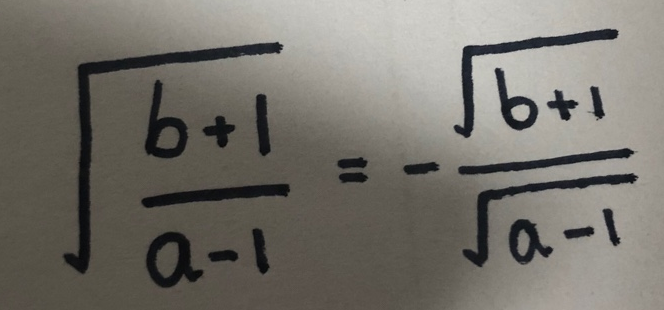 √((b+1)/(a-1)) = -√(b+1)/√(a-1)